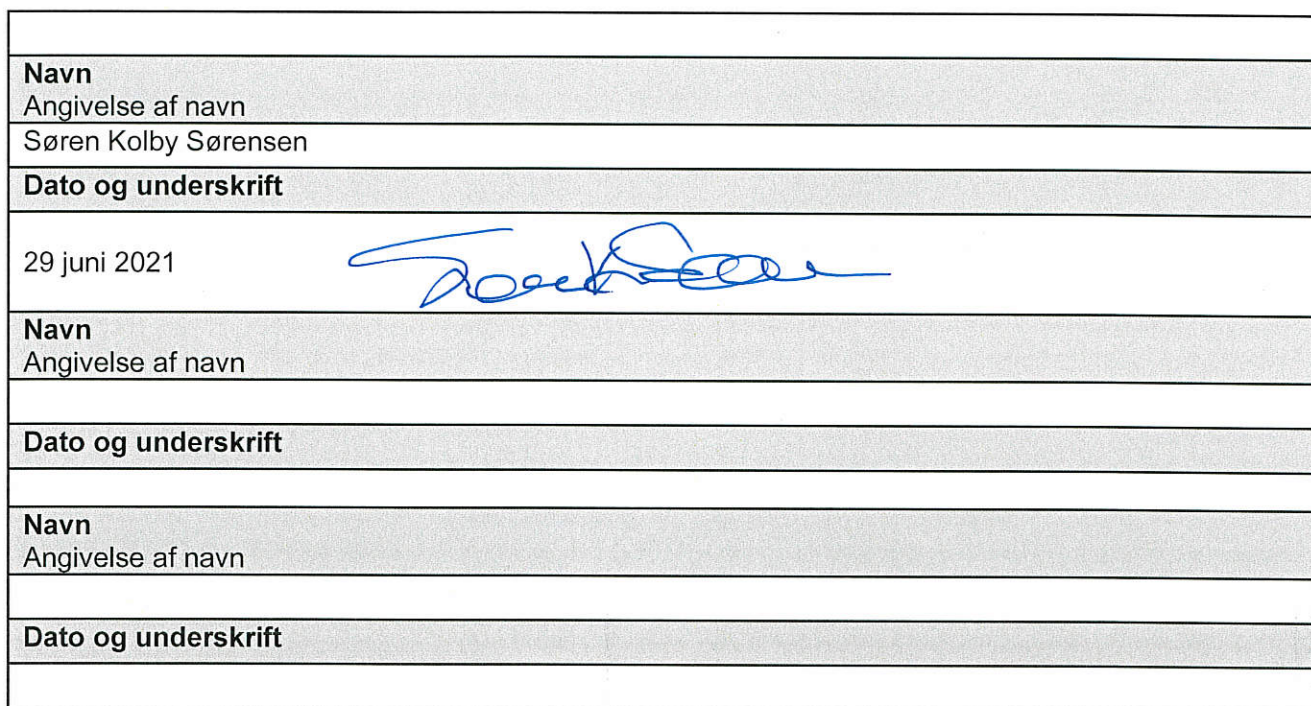 Navn
Angivelse af navn
Søren Kolby Sørensen
Dato og underskrift
29 juni 2021
Navn
Angivelse af navn
Dato og underskrift
Navn
Angivelse af navn
Dato og underskrift